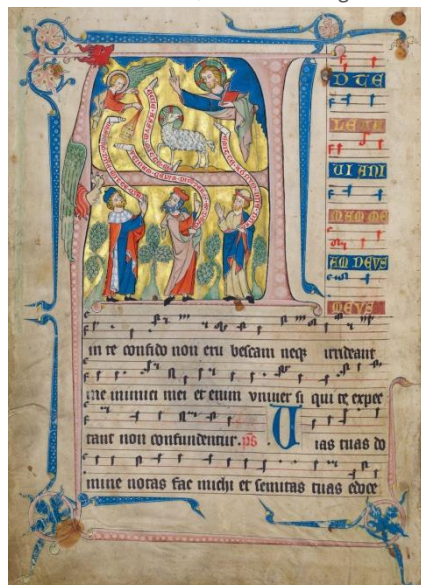 A
D TE
LE VA
VI ANI
MAM ME
AM DEVS
MEVS
in te confido non eru bescam neqz irrideant
me inimici mei et enim vniuer si qui te expec
tant non confundentur. ps Uias tuas do
mine notas fac michi et semitas tuas edoce